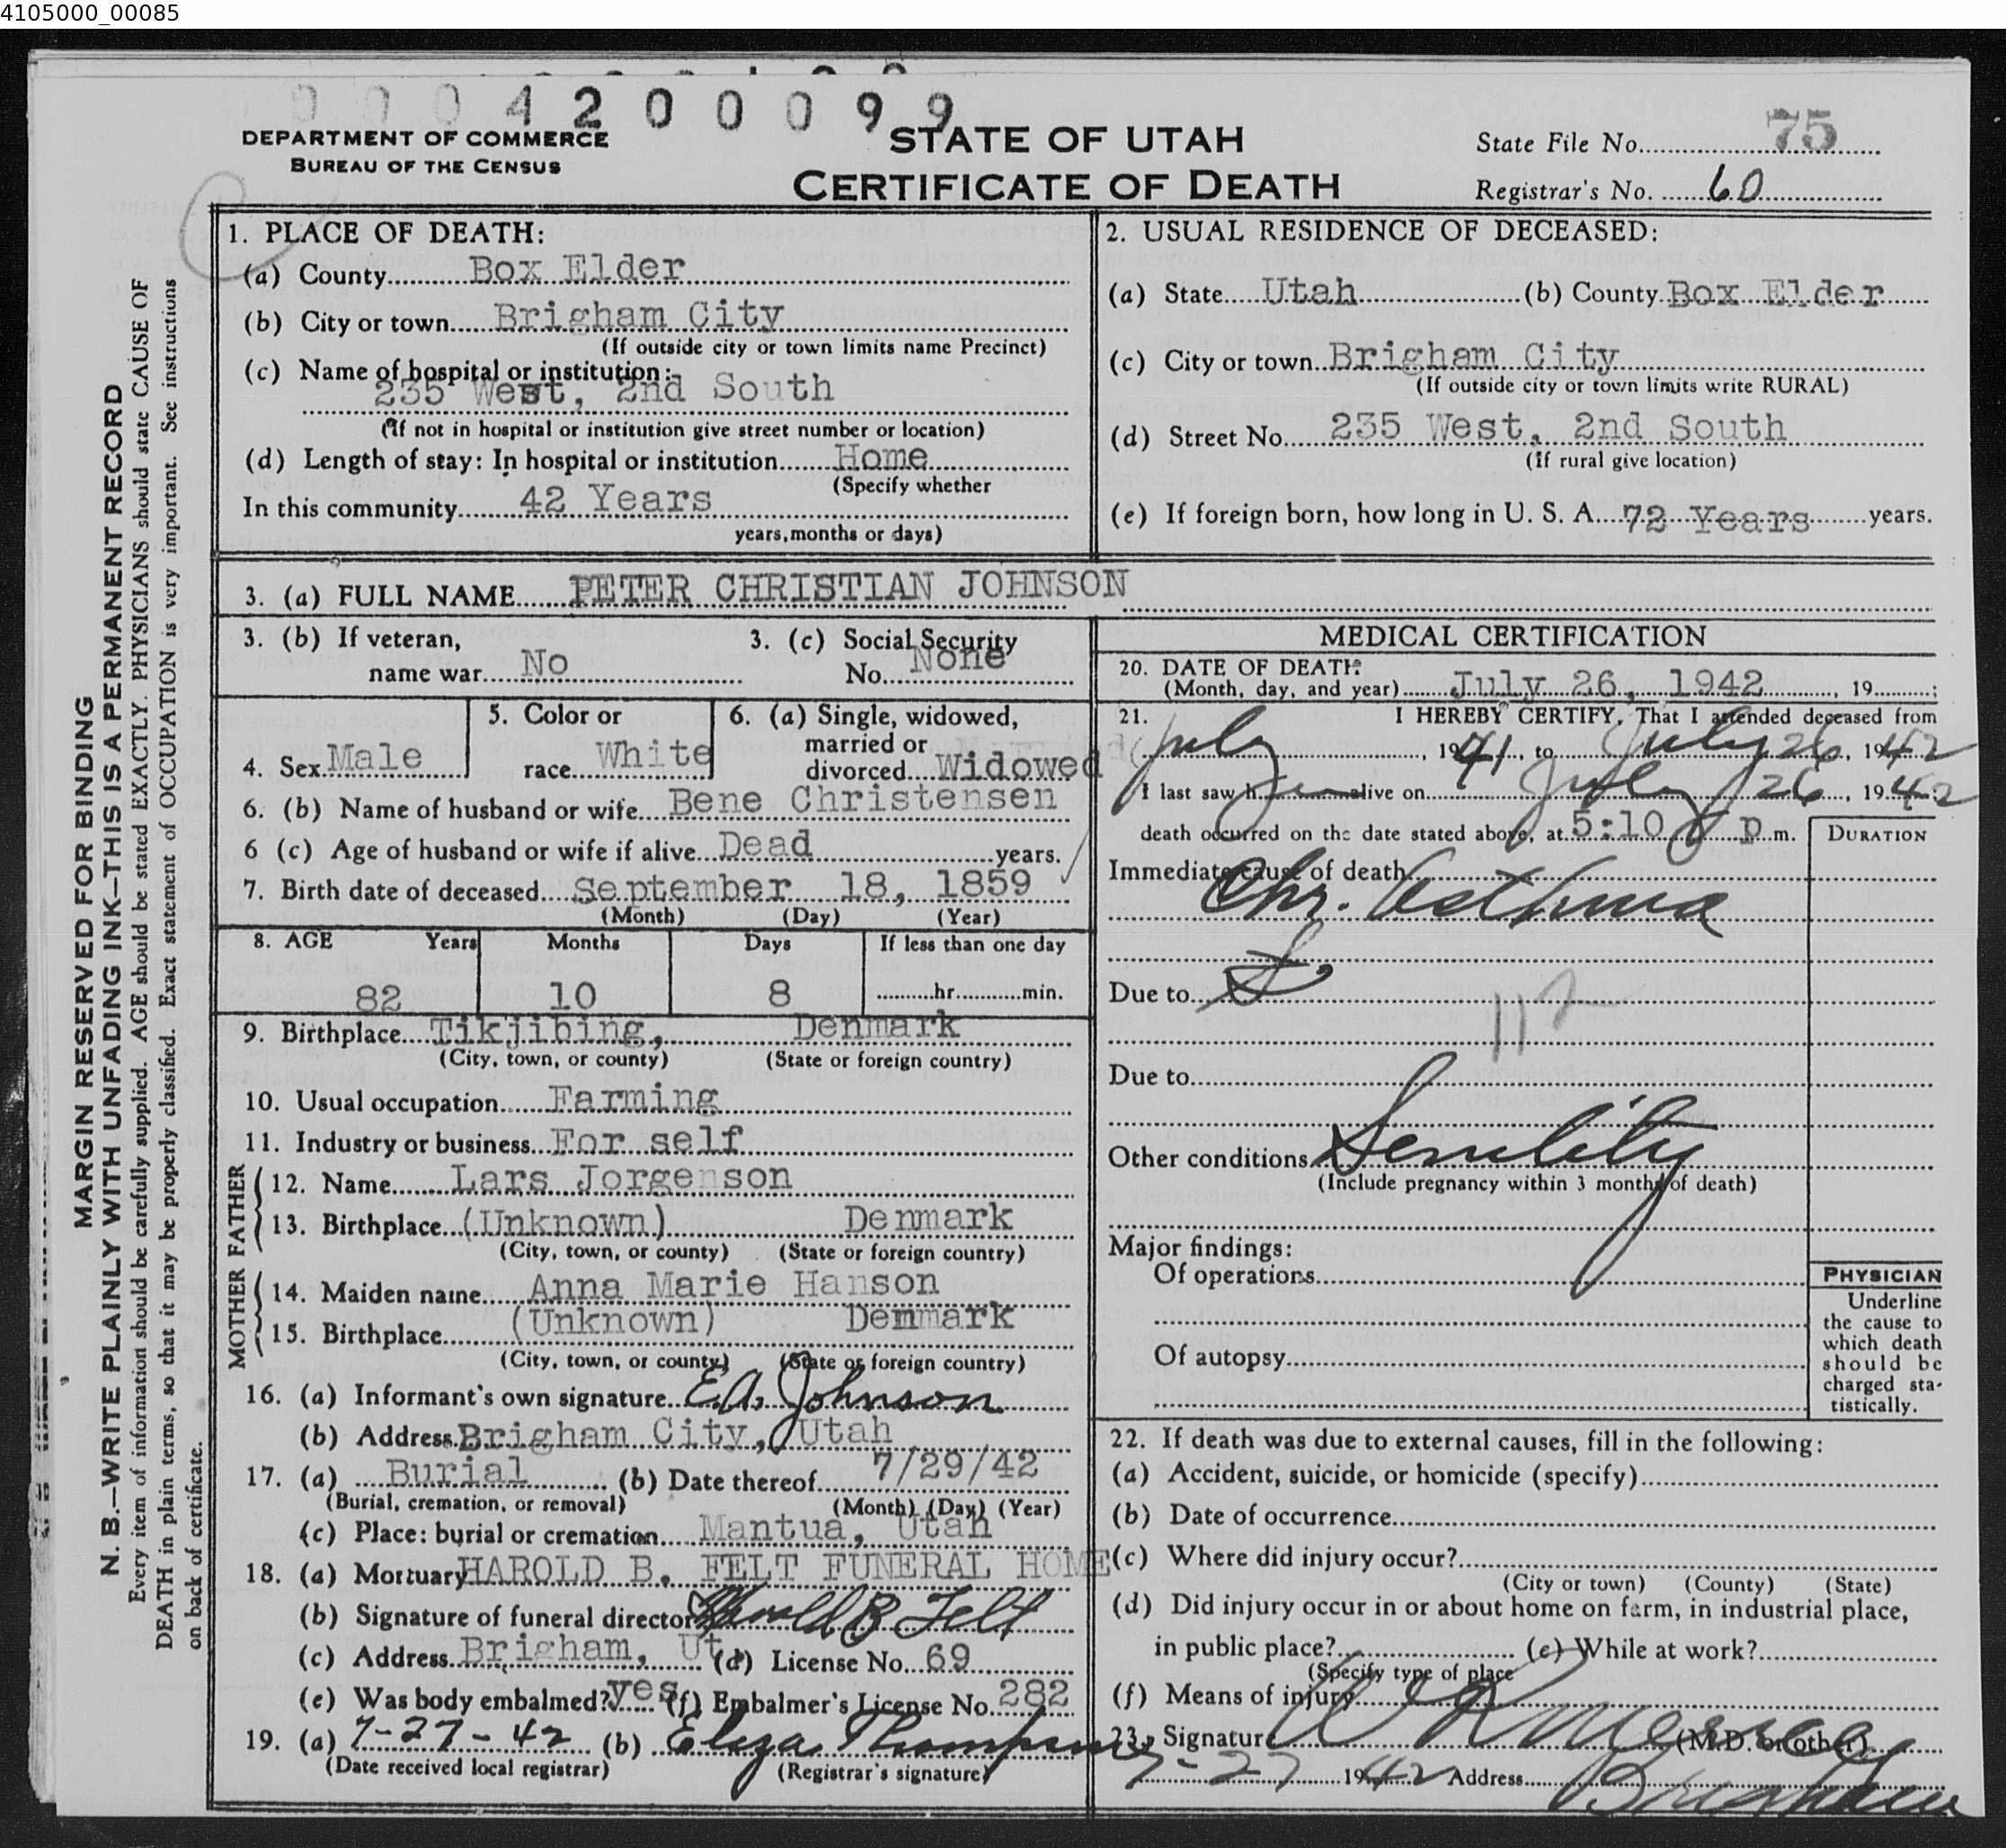 4105000_00085
0 0 0 4 2 0 0 0 9 9
DEPARTMENT OF COMMERCE
BUREAU OF THE CENSUS
STATE OF UTAH
CERTIFICATE OF DEATH
State File No. 75
Registrar's No. 60
MARGIN RESERVED FOR BINDING
N. B.—WRITE PLAINLY WITH UNFADING INK—THIS IS A PERMANENT RECORD
Every item of information should be carefully supplied. AGE should be stated EXACTLY. PHYSICIANS should state CAUSE OF
DEATH in plain terms, so that it may be properly classified. Exact statement of OCCUPATION is very important. See instructions
on back of certificate.
1. PLACE OF DEATH:
(a) County Box Elder
(b) City or town Brigham City
(If outside city or town limits name Precinct)
(c) Name of hospital or institution:
235 West, 2nd South
(If not in hospital or institution give street number or location)
(d) Length of stay: In hospital or institution Home
(Specify whether
In this community 42 Years
years, months or days)
2. USUAL RESIDENCE OF DECEASED:
(a) State Utah (b) County Box Elder
(c) City or town Brigham City
(If outside city or town limits write RURAL)
(d) Street No. 235 West, 2nd South
(If rural give location)
(e) If foreign born, how long in U. S. A. 72 Years years.
3. (a) FULL NAME PETER CHRISTIAN JOHNSON
3. (b) If veteran,
name war No
3. (c) Social Security
No. None
4. Sex Male
5. Color or
race White
6. (a) Single, widowed,
married or
divorced Widowed
6. (b) Name of husband or wife Bene Christensen
6 (c) Age of husband or wife if alive Dead years.
7. Birth date of deceased September 18, 1859
(Month) (Day) (Year)
8. AGE Years Months Days If less than one day
82 10 8 hr. min.
9. Birthplace Tikjibing, Denmark
(City, town, or county) (State or foreign country)
10. Usual occupation Farming
11. Industry or business For self
FATHER
12. Name Lars Jorgenson
13. Birthplace (Unknown) Denmark
(City, town, or county) (State or foreign country)
MOTHER
14. Maiden name Anna Marie Hanson
15. Birthplace (Unknown) Denmark
(City, town, or county) (State or foreign country)
16. (a) Informant's own signature E.A. Johnson
(b) Address Brigham City, Utah
17. (a) Burial (b) Date thereof 7/29/42
(Burial, cremation, or removal) (Month) (Day) (Year)
(c) Place: burial or cremation Mantua, Utah
18. (a) Mortuary HAROLD B. FELT FUNERAL HOME
(b) Signature of funeral director Harold B Felt
(c) Address Brigham, Ut. (d) License No. 69
(e) Was body embalmed? yes (f) Embalmer's License No. 282
19. (a) 7-27-42 (b) Eliza Thompson
(Date received local registrar) (Registrar's signature)
MEDICAL CERTIFICATION
20. DATE OF DEATH:
(Month, day, and year) July 26, 1942, 19 ;
21. I HEREBY CERTIFY, That I attended deceased from
July, 1941, to July 26, 1942
I last saw him alive on July 26, 1942
death occurred on the date stated above, at 5:10 p m.
DURATION
Immediate cause of death
Chr. Asthma
Due to
112
Due to
Other conditions Senility
(Include pregnancy within 3 months of death)
Major findings:
Of operations
Of autopsy
PHYSICIAN
Underline
the cause to
which death
should be
charged sta-
tistically.
22. If death was due to external causes, fill in the following:
(a) Accident, suicide, or homicide (specify)
(b) Date of occurrence
(c) Where did injury occur?
(City or town) (County) (State)
(d) Did injury occur in or about home on farm, in industrial place,
in public place? (e) While at work?
(Specify type of place
(f) Means of injury
23. Signature (M.D. or other)
7-27 1942 Address Brigham